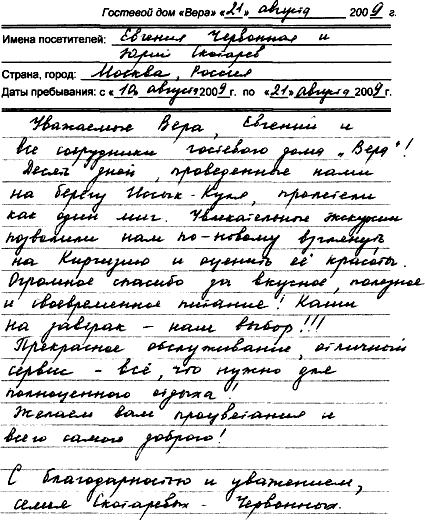 Гостевой дом «Вера» «21» августа 2009 г.
Имена посетителей: Евгения Червонная и
Юрий Скотарев
Страна, город: Москва, Россия
Даты пребывания: с «10» август 2009 г. по «21» августа 2009 г.
Уважаемые Вера, Евгений и
все сотрудники гостевого дома „Вера"!
Десять дней, проведенные нами
на берегу Иссык-Куля, пролетели
как один миг. Увлекательные экскурсии
позволили нам по-новому взглянуть
на Киргизию и оценить её красоты.
Огромное спасибо за вкусное, полезное
и своевременное питание! Каши
на завтрак - наш выбор!!!
Прекрасное обслуживание, отличный
сервис - всё, что нужно для
полноценного отдыха!
Желаем вам процветания и
всего самого доброго!
С благодарностью и уважением,
семья Скотаревых - Червонных.